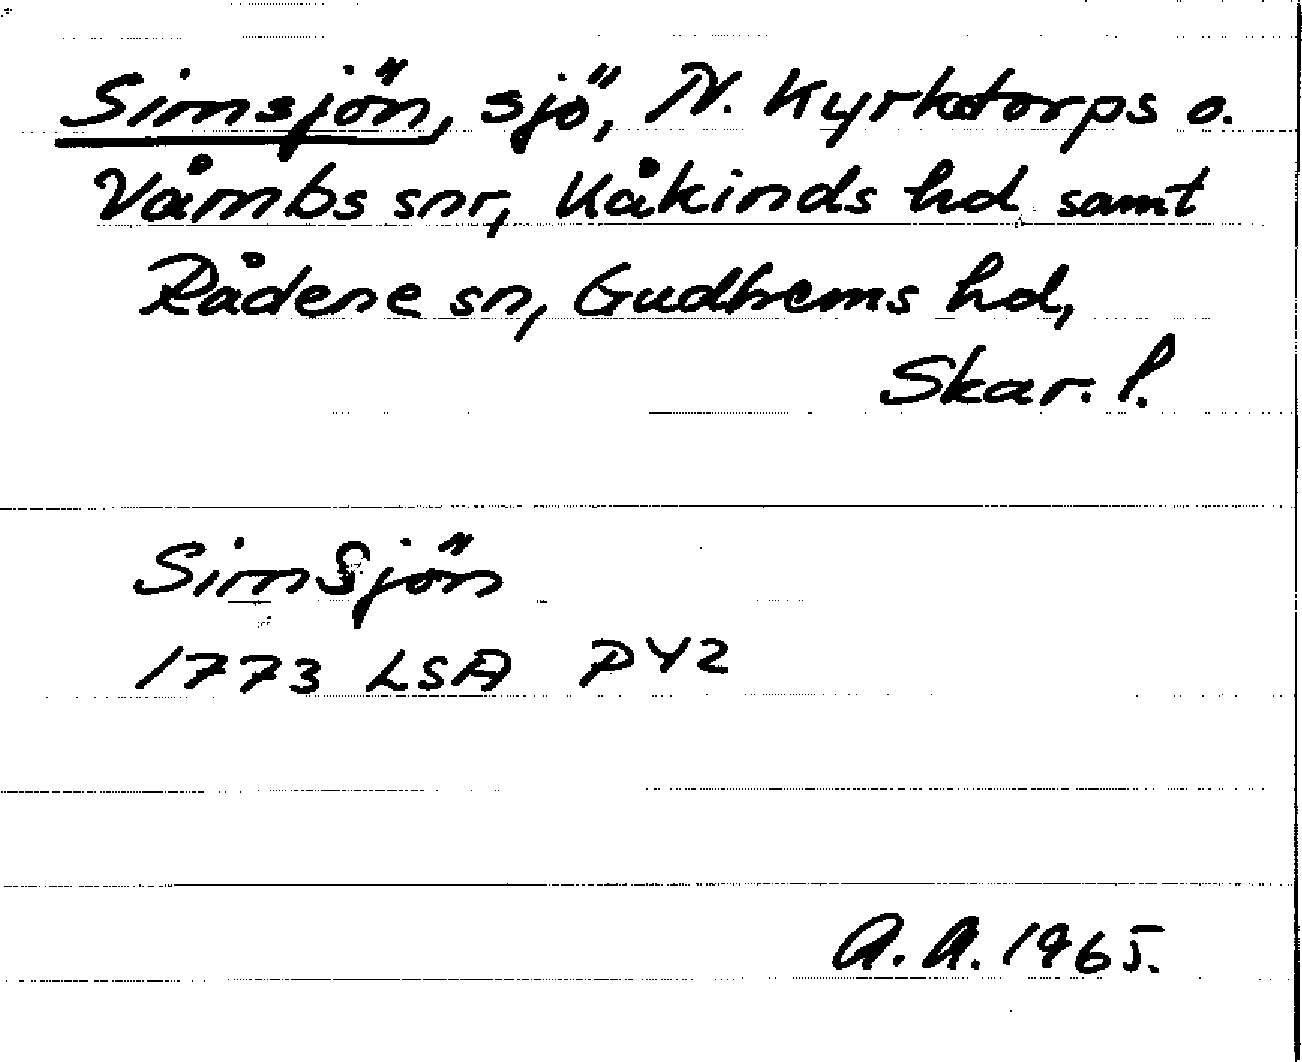 Simsjön, sjö, N. Kyrketorps o.
Våmbs snr, Kåkinds hd samt
Rådene sn, Gudhems hd,
Skar. l.
SimSjön
1773 LSA P42
A. A. 1965.